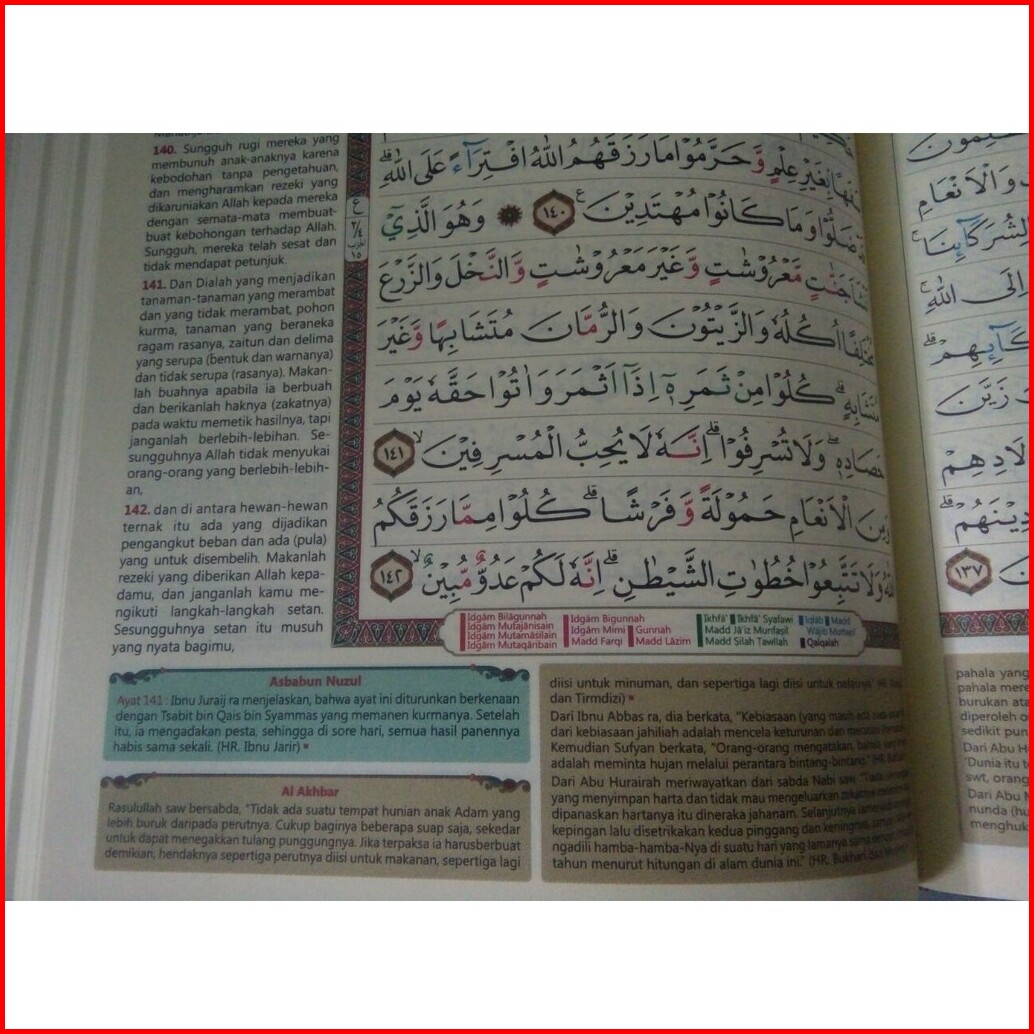 140. Sungguh rugi mereka yang
membunuh anak-anaknya karena
kebodohan tanpa pengetahuan,
dan mengharamkan rezeki yang
dikaruniakan Allah kepada mereka
dengan semata-mata membuat-
buat kebohongan terhadap Allah.
Sungguh, mereka telah sesat dan
tidak mendapat petunjuk.
141. Dan Dialah yang menjadikan
tanaman-tanaman yang merambat
dan yang tidak merambat, pohon
kurma, tanaman yang beraneka
ragam rasanya, zaitun dan delima
yang serupa (bentuk dan warnanya)
dan tidak serupa (rasanya). Makan-
lah buahnya apabila ia berbuah
dan berikanlah haknya (zakatnya)
pada waktu memetik hasilnya, tapi
janganlah berlebih-lebihan. Se-
sungguhnya Allah tidak menyukai
orang-orang yang berlebih-lebih-
an,
142. dan di antara hewan-hewan
ternak itu ada yang dijadikan
pengangkut beban dan ada (pula)
yang untuk disembelih. Makanlah
rezeki yang diberikan Allah kepa-
damu, dan janganlah kamu me-
ngikuti langkah-langkah setan.
Sesungguhnya setan itu musuh
yang nyata bagimu,
بِغَيْرِ عِلْمٍ وَّحَرَّمُوْا مَا رَزَقَهُمُ اللّٰهُ افْتِرَاۤءً عَلَى اللّٰهِ ۗ
ضَلُّوْا وَمَا كَانُوْا مُهْتَدِيْنَ ࣖ ١٤٠ ۞ وَهُوَ الَّذِيْٓ
جَنّٰتٍ مَّعْرُوْشٰتٍ وَّغَيْرَ مَعْرُوْشٰتٍ وَّالنَّخْلَ وَالزَّرْعَ
مُخْتَلِفًا اُكُلُهٗ وَالزَّيْتُوْنَ وَالرُّمَّانَ مُتَشَابِهًا وَّغَيْرَ
مُتَشَابِهٍ ۗ كُلُوْا مِنْ ثَمَرِهٖٓ اِذَآ اَثْمَرَ وَاٰتُوْا حَقَّهٗ يَوْمَ
حَصَادِهٖ ۖ وَلَا تُسْرِفُوْا ۗ اِنَّهٗ لَا يُحِبُّ الْمُسْرِفِيْنَ ۙ ١٤١
وَمِنَ الْاَنْعَامِ حَمُوْلَةً وَّفَرْشًا ۗ كُلُوْا مِمَّا رَزَقَكُمُ
اللّٰهُ وَلَا تَتَّبِعُوْا خُطُوٰتِ الشَّيْطٰنِ ۗ اِنَّهٗ لَكُمْ عَدُوٌّ مُّبِيْنٌ ۙ ١٤٢
ع
٢/٤
١٥
Idgām Bilāgunnah
Idgām Mutajānisain
Idgām Mutamāsilain
Idgām Mutaqāribain
Idgām Bigunnah
Idgām Mimi Gunnah
Madd Farqi Madd Lāzim
Ikhfā' Ikhfā' Syafawi
Madd Jā'iz Munfasil
Madd Silah Tawilah
Iqlāb Madd
Wājib Muttasil
Qalqalah
Asbabun Nuzul
Ayat 141: Ibnu Juraij ra menjelaskan, bahwa ayat ini diturunkan berkenaan
dengan Tsabit bin Qais bin Syammas yang memanen kurmanya. Setelah
itu, ia mengadakan pesta, sehingga di sore hari, semua hasil panennya
habis sama sekali. (HR. Ibnu Jarir)
Al Akhbar
Rasulullah saw bersabda, "Tidak ada suatu tempat hunian anak Adam yang
lebih buruk daripada perutnya. Cukup baginya beberapa suap saja, sekedar
untuk dapat menegakkan tulang punggungnya. Jika terpaksa ia harusberbuat
demikian, hendaknya sepertiga perutnya diisi untuk makanan, sepertiga lagi
diisi untuk minuman, dan sepertiga lagi diisi untuk nafasnya" (HR.
dan Tirmdizi)
Dari Ibnu Abbas ra, dia berkata, "Kebiasaan (yang masih ada pada
dari kebiasaan jahiliah adalah mencela keturunan dan meratapi
Kemudian Sufyan berkata, "Orang-orang mengatakan, bahwa yang
adalah meminta hujan melalui perantara bintang-bintang." (HR.
Dari Abu Hurairah meriwayatkan dari sabda Nabi saw "Tiada
yang menyimpan harta dan tidak mau mengeluarkan zakatnya
dipanaskan hartanya itu dineraka jahanam. Selanjutnya
kepingan lalu disetrikakan kedua pinggang dan keningnya,
ngadili hamba-hamba-Nya di suatu hari yang lamanya sama
tahun menurut hitungan di alam dunia ini." (HR. Bukhari
وَالْاَنْعَامِ
اِلَى اللّٰهِ ۚ
زَيَّنَ
١٣٧
pahala yang
pahala mere
burukan ata
diperoleh o
sedikit pun
Dari Abu H
'Dunia itu t
swt, orang
Dari Abu M
nunda (hu
menghuk